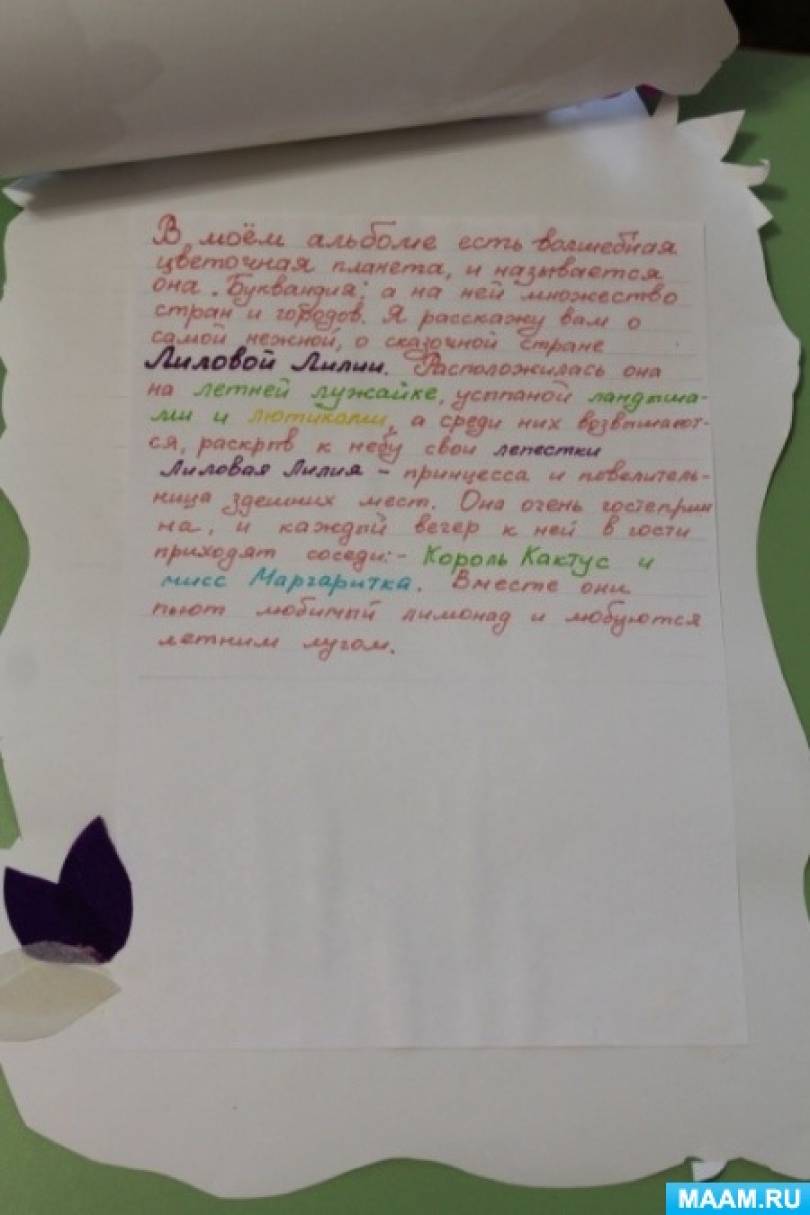 В моём альбоме есть волшебная
цветочная планета, и называется
она „Буквандия“, а на ней множество
стран и городов. Я расскажу вам о
самой нежной, о сказочной стране
Лиловой Лилии. Расположилась она
на летней лужайке, усыпаной ландыша-
ми и лютиками, а среди них возвышают-
ся, раскрыв к небу свои лепестки
Лиловая Лилия - принцесса и повелитель-
ница здешних мест. Она очень гостеприим
на, и каждый вечер к ней в гости
приходят соседи: - Король Кактус и
мисс Маргаритка. Вместе они
пьют любимый лимонад и любуются
летним лугом.
MAAM.RU